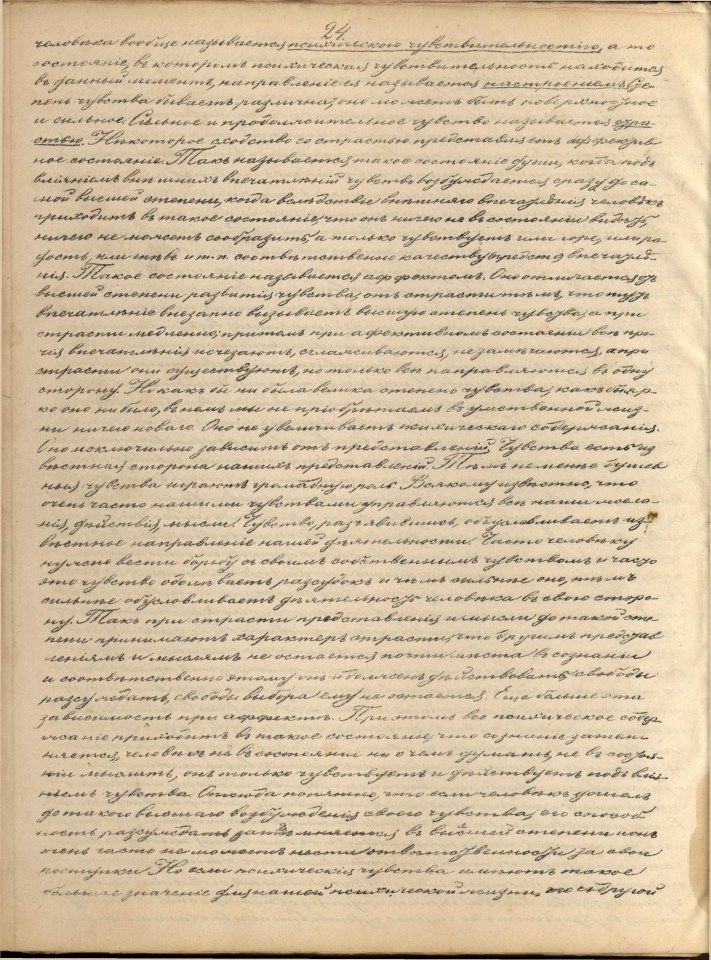 24.
человѣка вообще называется психическою чувствительностію, а то
состояніе, въ которомъ психическая чувствительность находится
въ данный моментъ, направленіе ея называется настроеніемъ. Сте-
пень чувства бываетъ различна; оно можетъ быть поверхностное
и сильное. Сильное и продолжительное чувство называется стра-
стью. Нѣкоторое сходство со страстью представляетъ аффектив-
ное состояніе. Такъ называется такое состояніе души, когда подъ
вліяніемъ внѣшнихъ впечатлѣній чувство возбуждается сразу до са-
мой высшей степени, когда вслѣдствіе внѣшняго впечатлѣнія человѣкъ
приходитъ въ такое состояніе, что онъ ничего не въ состояніи видѣть
ничего не можетъ сообразить, а только чувствуетъ или горе, или ра-
дость, или гнѣвъ и т.п. соотвѣтственно качеству впечатлѣ-
нія. Такое состояніе называется аффектомъ. Оно отличается
высшей степени развитія чувства, отъ страсти тѣмъ, что тутъ
впечатлѣніе внезапно вызываетъ высшую степень чувства, а при
страсти медленно; притомъ при афективномъ состояніи всѣ про-
чія впечатлѣнія исчезаютъ, сглаживаются, не замѣчаются, а при
страсти они существуютъ, но только всѣ направляются въ одну
сторону. Но какъ бы ни была велика степень чувства, какъ бы яр-
ко оно ни было, въ немъ мы не пріобрѣтаемъ въ умственной жиз-
ни ничего новаго. Оно не увеличиваетъ психическаго содержанія.
Оно исключительно зависитъ отъ представленій. Чувства есть из-
вѣстная сторона нашихъ представленій. Тѣмъ не менѣе душев
ныя чувства играютъ громадную роль. Всякому извѣстно, что
очень часто нашими чувствами управляются всѣ наши жела-
нія, дѣйствія, мысли. Чувство, разъ явившись, обусловливаетъ из-
вѣстное направленіе нашей дѣятельности. Часто человѣку
нужно вести борьбу съ своимъ собственнымъ чувствомъ и часто
это чувство одолѣваетъ разсудокъ и чѣмъ сильнѣе оно, тѣмъ
сильнѣе обусловливаетъ дѣятельность человѣка въ свою сторо-
ну. Такъ при страсти представленія и мысли до такой сте-
пени принимаютъ характеръ страсти, что другимъ представ
леніямъ и мыслямъ не остается почти мѣста въ сознаніи
и соотвѣтственно этому онъ и долженъ дѣйствовать; свободы
разсуждать, свободы выбора ему не остается. Еще больше эта
зависимость при аффектѣ. При этомъ все психическое содер-
жаніе приходитъ въ такое состояніе, что сознаніе затем-
няется, человѣкъ не въ состояніи ни о чемъ думать, не въ состоя-
ніи мыслить, онъ только чувствуетъ и дѣйствуетъ подъ влія-
ніемъ чувства. Отсюда понятно, что если человѣкъ дошелъ
до такого высшаго возбужденія своего чувства, его способ
ность разсуждать затемняется въ высшей степени и онъ
очень часто не можетъ нести отвѣтственности за свои
поступки. Но если психическія чувства имѣютъ такое
большое значеніе для нашей психической жизни, то съ другой